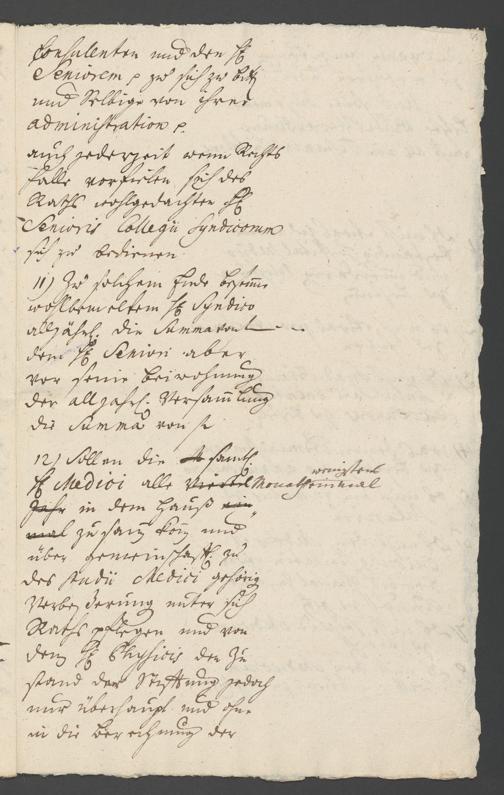 Consulenten und den H.
Seniorem p zu sich zu bitt.
und Selbige von ihrer
administration p.
auch jederzeit wenn Rechts
fälle vorfielen, sich des
Raths wohlgedachten H.
Senioris Collegii Syndicorum
sich zu bedienen.
11) Zu solchem Ende bestimme
wohlbemelten H. Syndico
alljährl. die Summa von
dem H. Seniori aber
vor seine beiwohnung
der alljährl. Versammlung
die Summa von
12) Sollen die samtl.
H. Medici alle Viertel Monath wenigstens einmal
Jahr in dem Hauß ein
mal zusam kom und
über gemeinschaftl. zu
des studii Medici gehörig
Verbesserung unter sich
Raths pflegen und von
dem H. Physicis den Zu
stand der Stifftung jedoch
nur überhaupt und ohne
in die berechnung der